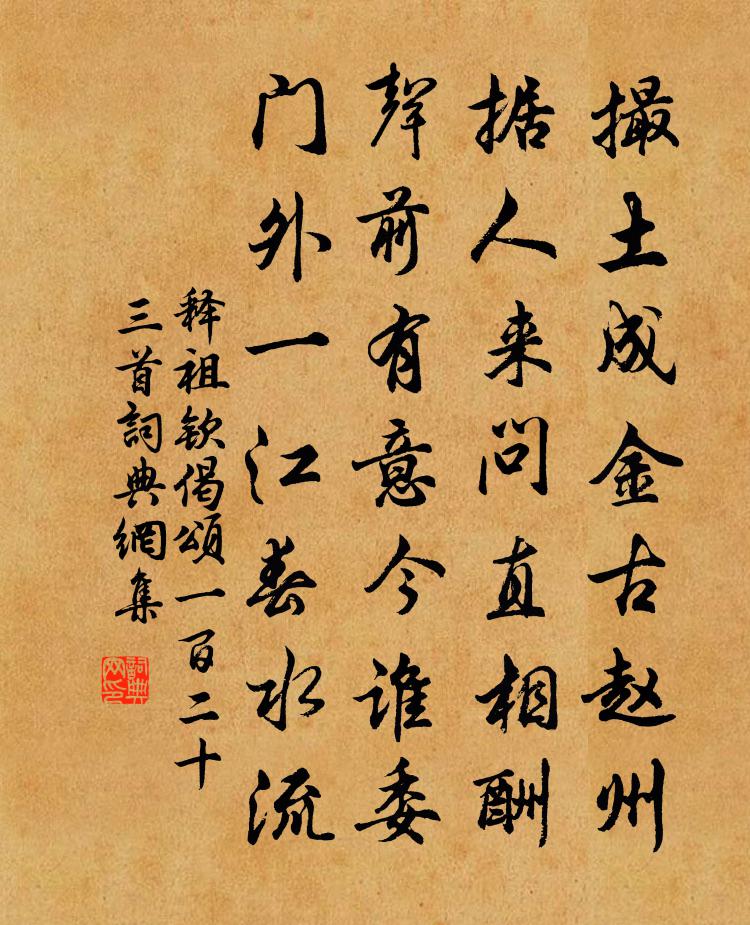 撮土成金古赵州
据人来问直相酬
聲前有意今谁委
门外一江春水流
释祖钦偈頌一百二十
三首詞典網集
詞典网印